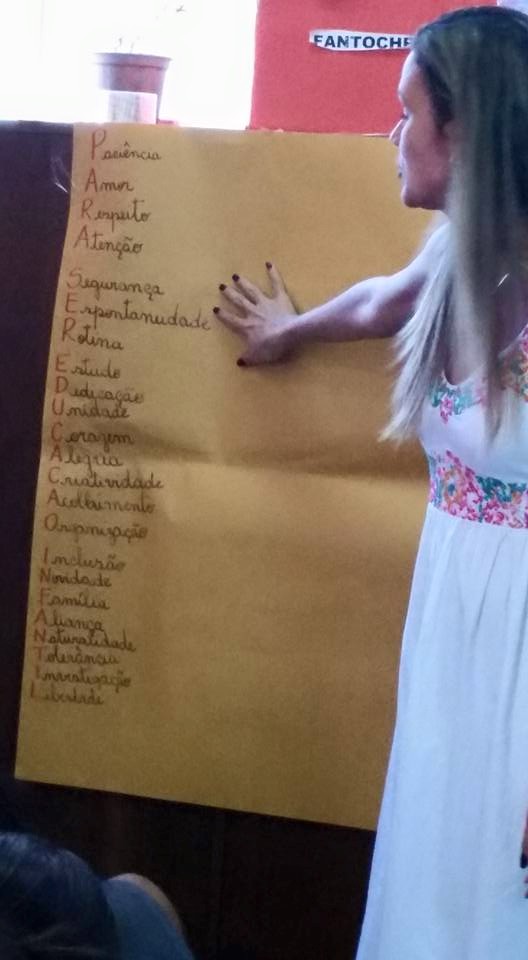 FANTOCHE
Paciência
Amor
Respeito
Atenção
Segurança
Espontaneidade
Rotina
Estudo
Dedicação
Unidade
Coragem
Alegria
Criatividade
Acolhimento
Organização
Inclusão
Novidade
Família
Aliança
Naturalidade
Tolerância
Investigação
Liberdade